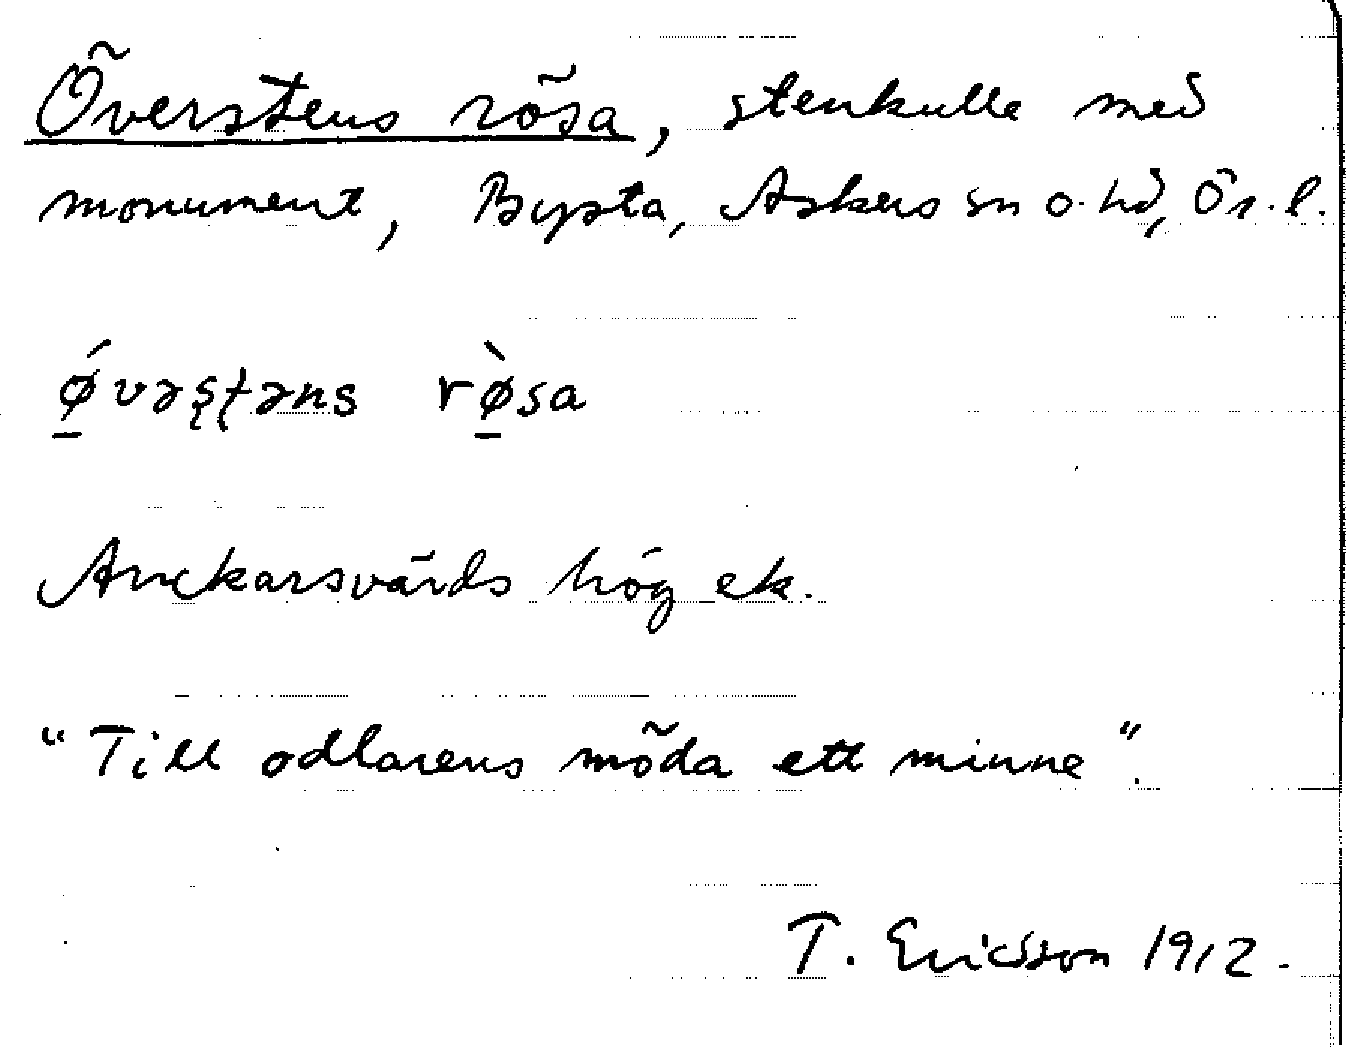 Överstens rösa, stenkulle med
monument, Bysta, Askers sn o. hd, Ör. l.
ǿ̱vəşţəns rø̱̀sa
Anckarsvärds hög ek.
"Till odlarens möda ett minne".
T. Ericsson 1912.